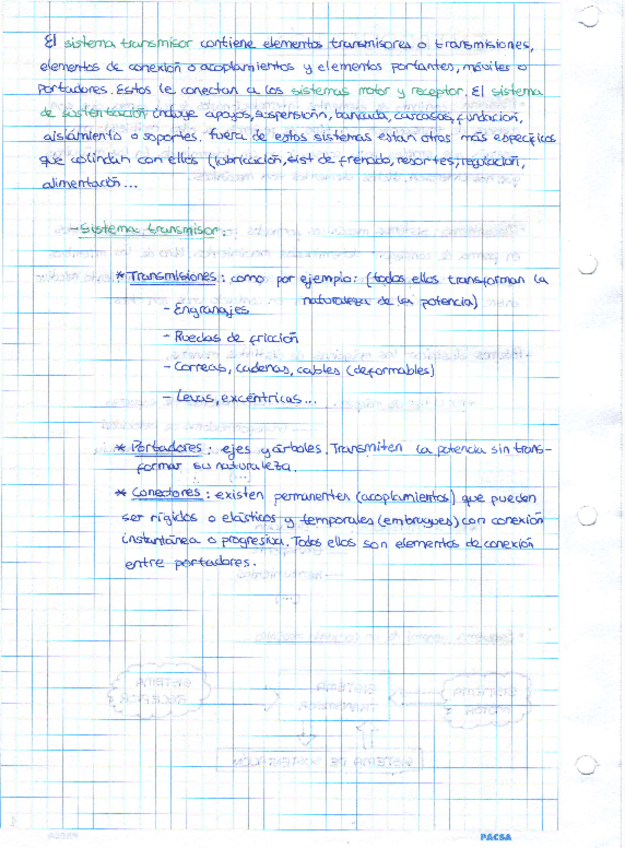 El sistema transmisor contiene elementos transmisores o transmisiones,
elementos de conexión o acoplamientos y elementos portantes, móviles o
portadores. Estos le conectan a los sistemas motor y receptor. El sistema
de sustentación incluye apoyos, suspensión, bancada, carcasas, fundación,
aislamiento o soportes. fuera de estos sistemas estan otros más específicos
que colindan con ellos (lubricación, sist de frenado, resortes, regulación,
alimentación...
- Sistema transmisor:
* Transmisiones: como por ejemplo: (todos ellos transforman la
naturaleza de la potencia)
- Engranajes
- Ruedas de fricción
- Correas, cadenas, cables (deformables)
- Levas, excéntricas...
* Portadores: ejes y árboles. Transmiten la potencia sin trans-
formar su naturaleza.
* Conectores: existen permanentes (acoplamientos) que pueden
ser rígidos o elásticos y temporales (embragues) con conexión
instantánea o progresiva. Todos ellos son elementos de conexión
entre portadores.
PACSA